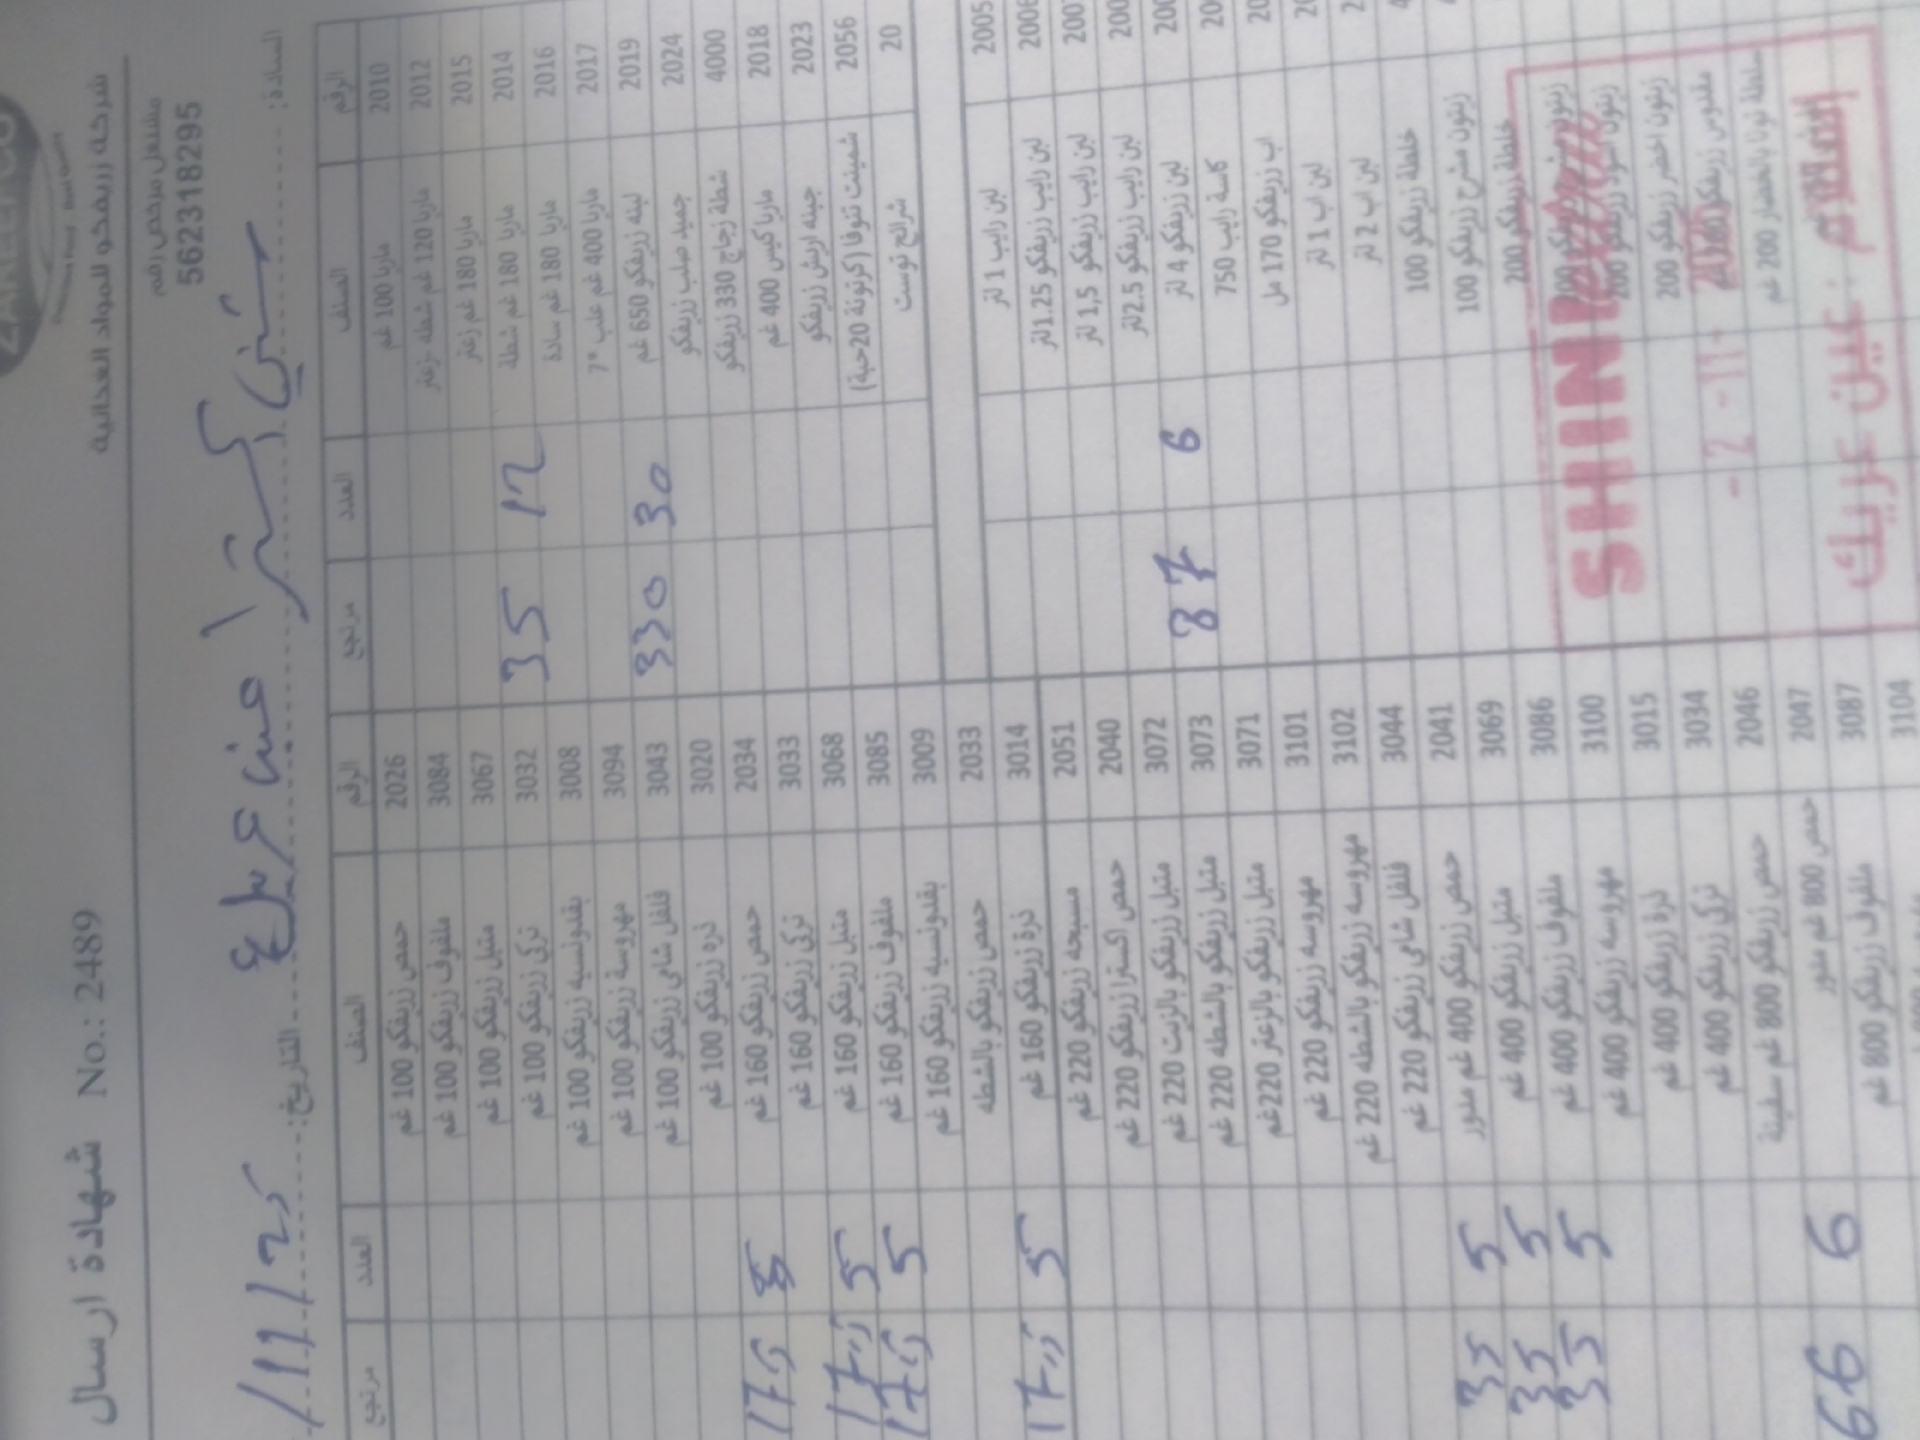 شركة زريفكو للمواد الغذائية
مشغل مرخص رقم
562318295
شهادة ارسال No.: 2489
السادة: شني اكسترا عين عريك التاريخ: /11/25
الرقم الصنف العدد مرتجع
2010 مارتا 100 غم
2012 مارتا 120 غم شطه - زعتر
2015 مارتا 180 غم زعتر
2014 مارتا 180 غم شطة 12 35
2016 مارتا 180 غم سادة
2017 مارتا 400 غم علب *7
2019 لبنه زريفكو 650 غم 30 330
2024 جميد صلب زريفكو
4000 شطة زجاج 330 زريفكو
2018 مارتا كيس 400 غم
2023 جبنه اريش زريفكو
2056 شمينت تنوفا (كرتونة 20حبة)
20 شرائح توست
2005 لبن رايب 1 لتر
2006 لبن رايب زريفكو 1.25لتر
200 لبن رايب زريفكو 1,5 لتر
200 لبن رايب زريفكو 2.5لتر
200 لبن زريفكو 4 لتر 6 87
20 كاسة رايب 750
20 اب زريفكو 170 مل
20 لبن اب 1 لتر
2 لبن اب 2 لتر
خلطة زريفكو 100
زيتون مشرح زريفكو 100
خلطة زريفكو 200
زيتون اسود زريفكو 200
زيتون اخضر زريفكو 200
مقدوس زريفكو
سلطة تونا بالخضار 200 غم
الرقم الصنف العدد مرتجع
2026 حمص زريفكو 100 غم
3084 ملفوف زريفكو 100 غم
3067 متبل زريفكو 100 غم
3032 تركي زريفكو 100 غم
3008 بقدونسيه زريفكو 100 غم
3094 مهروسة زريفكو 100 غم
3043 فلفل شامي زريفكو 100 غم
3020 ذره زريفكو 100 غم
2034 حمص زريفكو 160 غم
3033 تركي زريفكو 160 غم
3068 متبل زريفكو 160 غم 5
3085 ملفوف زريفكو 160 غم 5
3009 بقدونسيه زريفكو 160 غم
2033 حمص زريفكو بالشطه
3014 ذرة زريفكو 160 غم 5
2051 مسبحه زريفكو 220 غم
2040 حمص اكسترا زريفكو 220 غم
3072 متبل زريفكو بالزيت 220 غم
3073 متبل زريفكو بالشطه 220 غم
3071 متبل زريفكو بالزعتر 220غم
3101 مهروسه زريفكو 220 غم
3102 مهروسه زريفكو بالشطه 220 غم
3044 فلفل شامي زريفكو 220 غم
2041 حمص زريفكو 400 غم مدور 5 35
3069 متبل زريفكو 400 غم 5 35
3086 ملفوف زريفكو 400 غم 5 35
3100 مهروسه زريفكو 400 غم
3015 ذرة زريفكو 400 غم
3034 تركي زريفكو 400 غم
2046 حمص زريفكو 800 غم سفينة
2047 حمص 800 غم مدور 6 66
3087 ملفوف زريفكو 800 غم
3104
SHINI
- 2 -11-
عين عريك